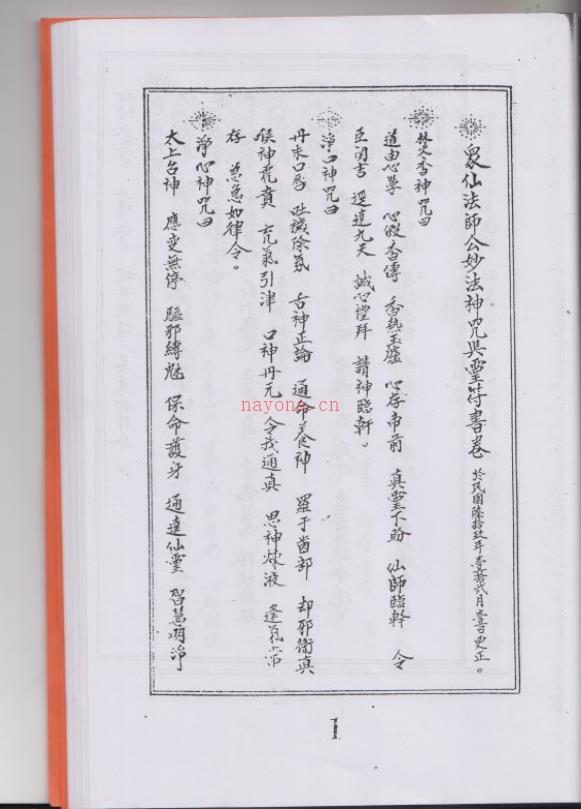 眾仙法師公妙法神咒與靈符書卷 於民國陸拾玖年壹拾貳月壹日更正。
焚香神咒曰
道由心學 心假香傳 香熱玉爐 心存帝前 真靈下盼 仙師臨軒 令
臣 逕達九天 誠心禮拜 請神臨軒。
淨口神咒曰
丹朱口 吐穢除氛 舌神正論 通命養神 羅于齒部 却邪衛真
喉神 氣引津 口神丹元 令我通真 思神液
存 急急如律令。
淨心神咒曰
太上台神 應变無停 驅邪縛魅 保命護身 通達仙靈 智慧明淨
1
nayona.cn